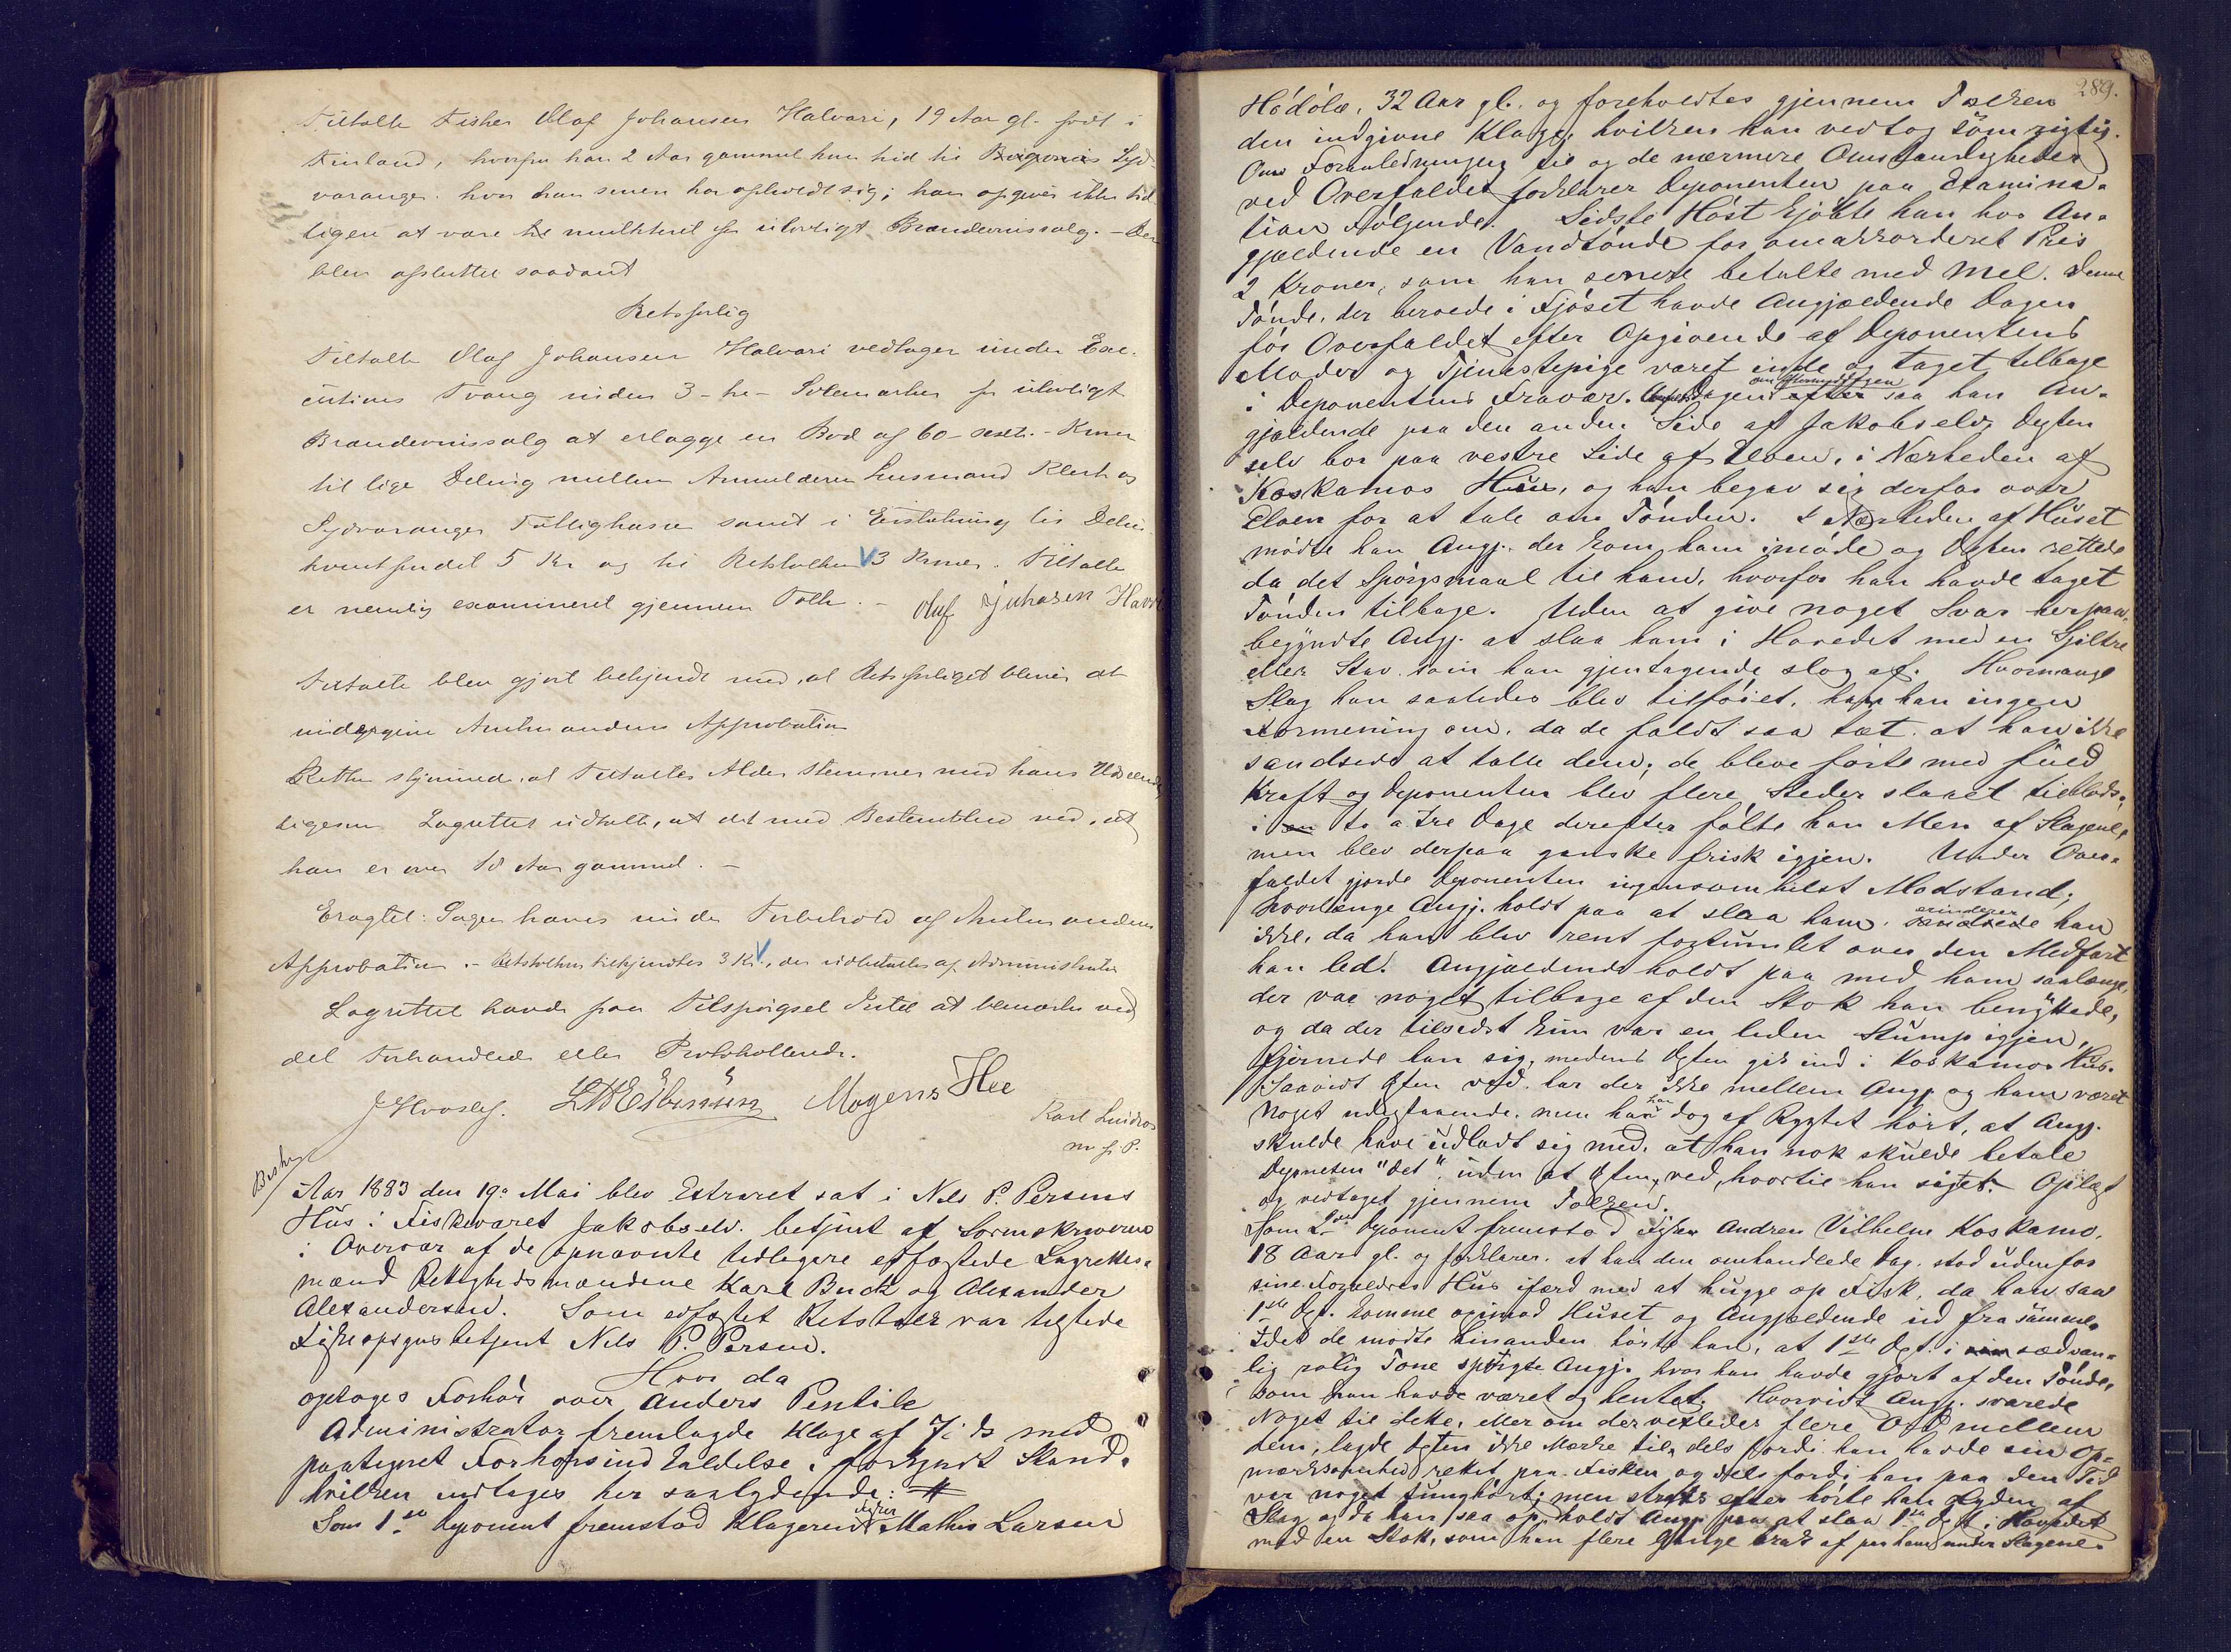 Tiltalte Fisker Olaf Johansen Halvari, 19 Aar gl. født i
Finland, hvorfra han 2 Aar gammel kom hid til Syd-
varanger. hvor han senere har opholdt sig; han opgives ikke tid
ligere at være mulkteret for ulovligt Brændevinssalg. - Der
blev afsluttet saadant
Retsforlig
Tiltalte Olaf Johansen Halvari vedtager under Exe-
cutions Tvang inden 3 - tre - Solemærker for ulovligt
Brændevinssalg at erlægge en Bod af 60 - sexti - Kroner
til lige Deling mellem Anmelderen Lensmand Klerk og
Sydvaranger Fattigkasse samt i Erstatning til Delin
kventfondet 5 Kr og til Retstolken 3 Kroner. Tiltalte
er nemlig examineret gjennem Tolk. - Oluf Juhasen
Tiltalte blev gjort bekjendt med, at Retsforliget bliver at
undergive Amtmandens Approbation
Retten skjønned, at Tiltaltes Alder stemmer med hans Udseende,
ligesom Lagrettet udtalte, at det med Bestemthed ved, at
han er over 18 Aar gammel. -
Eragtet: Sagen hæves under Forbehold af Amtmandens
Approbation. - Retstolken tilkjendtes 3 Kr., der udbetales af Administrator
Lagrettet havde paa Tilspørgsel Intet at bemærke ved
det Forhandlede eller Protokollerede.
Mogens Hee
Karl
m. f. P.
Aar 1883 den 19. Mai blev Extraret sat i Nils P. Persens
Hus i Fiskeværet Jakobselv. betjent af Sorenskriveren
i Overvær af de opnævnte tidligere edfæstede Lagrettes-
mænd Rettighedsmændene Karl Buck og Alexander
Alexandersen. Som edfæstet Retstolk var tilstede
Fiskeopsynsbetjent Nils P. Persen.
Hvor da
optoges Forhør over Anders Pentik
Administrator fremlagde Klage af 7 ds med
paategnet Forhørsindkaldelse i forkyndt Stand,
hvilken indtages her saalydende: #
Som 1ste Deponent fremstod Klageren Fisker Mathis Larsen
289.
32 Aar gl. og foreholdtes gjennem Tolken
den indgivne Klage, hvilken han vedtog som rigtig.
Om Foranledningen til og de nærmere Omstændigheder
ved Overfaldet forklarer Deponenten paa Examina-
tion Følgende: Sidste Høst kjøbte han hos An-
gjældende en Vandtønde for omakkorderet Pris
2 Kroner, som han senere betalte med Mel. Denne
Tønde, der beroede i Fjøset havde Angjældende Dagen
før Overfaldet efter Opgivende af Deponentens
Moder og Tjenestepige været inde og taget tilbage
i Deponentens Fravær. Dagen efter om Eftermiddagen saa han An-
gjældende paa den anden Side af Jakobselv, Dpten
selv bor paa vestre Side af Elven, i Nærheden af
Koskamos Hus, og han begav sig derfor over
Elven for at tale om Tønden. I Nærheden af Huset
mødte han Angj. der kom ham imøde og Dpten rettede
da det Spørgsmaal til ham, hvorfor han havde taget
Tønden tilbage. Uden at give noget Svar herpaa,
begyndte Angj. at slaa ham i Hovedet med en
eller Stav som han gjentagende slog af. Hvormange
Slag han saaledes blev tilføiet, har han ingen
Formening om, da de faldt saa tæt, at han ikke
sandsede at tælle dem; de bleve førte med fuld
Kraft og Deponenten blev flere Steder slaaet tilblods;
i en to a tre Dage derefter følte han Men af Slagene,
men blev derpaa ganske frisk igjen. Under Over-
faldet gjorde Deponenten ingensomhelst Modstand;
hvorlænge Angj. holdt paa at slaa ham, erindrer han
ikke, da han blev rent fortumlet over den Medfart
han led. Angjældende holdt paa med ham saalænge,
der var noget tilbage af den Stok han benyttede,
og da der tilsidst kun var en liden Stump igjen,
fjernede han sig, medens Dpten gik ind i Koskamos Hus.
Saavidt Dpten ved, har der ikke mellem Angj. og ham været
noget udestaaende, men har han dog af Rygtet hørt, at Angj.
skulde have udladt sig med, at han nok skulde betale
Deponenten "det", uden at Dpten ved, hvortil han sigtet. Oplæst
og vedtaget gjennem Tolken.
Som 2den Deponent fremstod Andreas Vilhelm Koskamo,
18 Aar gl. og forklarer, at han den omhandlede Dag, stod udenfor
sine Forældres Hus ifærd med at hugge op Fisk, da han saa
1ste Dpt. komme opimod Huset og Angjældende ud fra samme.
Idet de mødte hinanden hørte han, at 1ste Dpt. i sædvan-
lig rolig Tone spørgte Angj. hvor han havde gjort af den Tønde,
som han havde været og hentet. Hvorvidt Angj. svarede
Noget til dette, eller om der vexledes flere Ord mellem
dem, lagde Dpten ikke Mærke til, dels fordi han havde sin Op-
mærksomhed rettet paa Fisken og dels fordi han paa den Tid
var noget tunghørt; men strax efter hørte han Lyden af
Slag og da han saa op, holdt Angj. paa at slaa 1ste Dpt. i Hovedet
med en Stok, som han flere Gange brak af paa ham under Slagene.